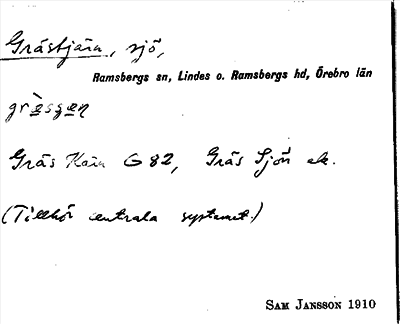 Grästjärn, sjö,
Ramsbergs sn, Lindes o. Ramsbergs hd, Örebro län
Gräs G 82, Gräs Sjön
(Tillhör centrala systemet.)
SAM JANSSON 1910